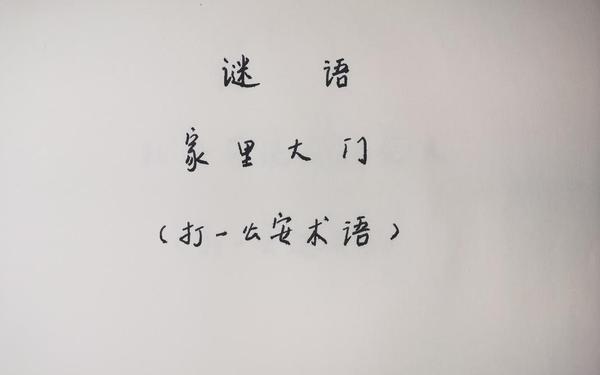 谜 语
家里大门
（打一公安术语）